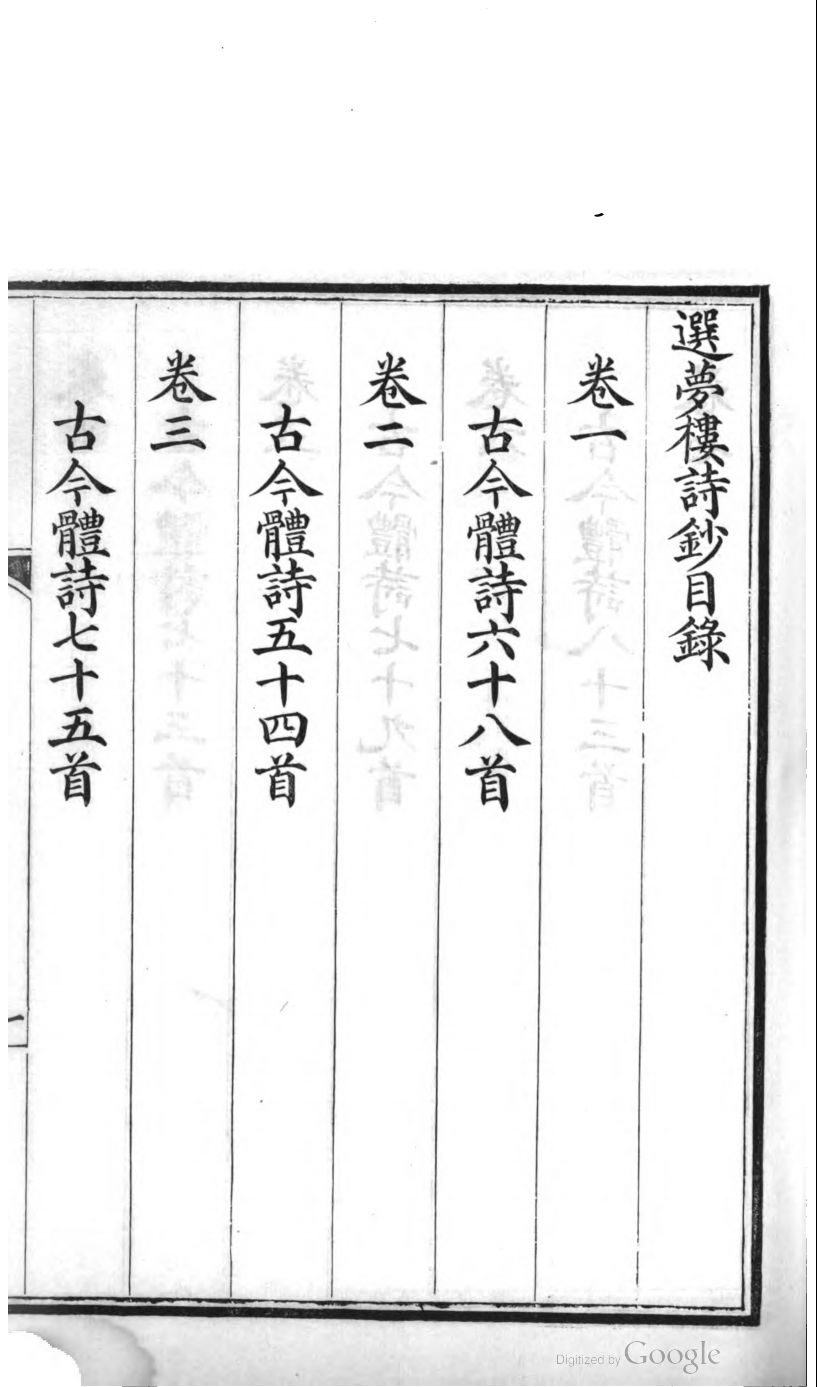 選夢樓詩鈔目錄
卷一
古今體詩六十八首
卷二
古今體詩五十四首
卷三
古今體詩七十五首
一
Digitized by Google